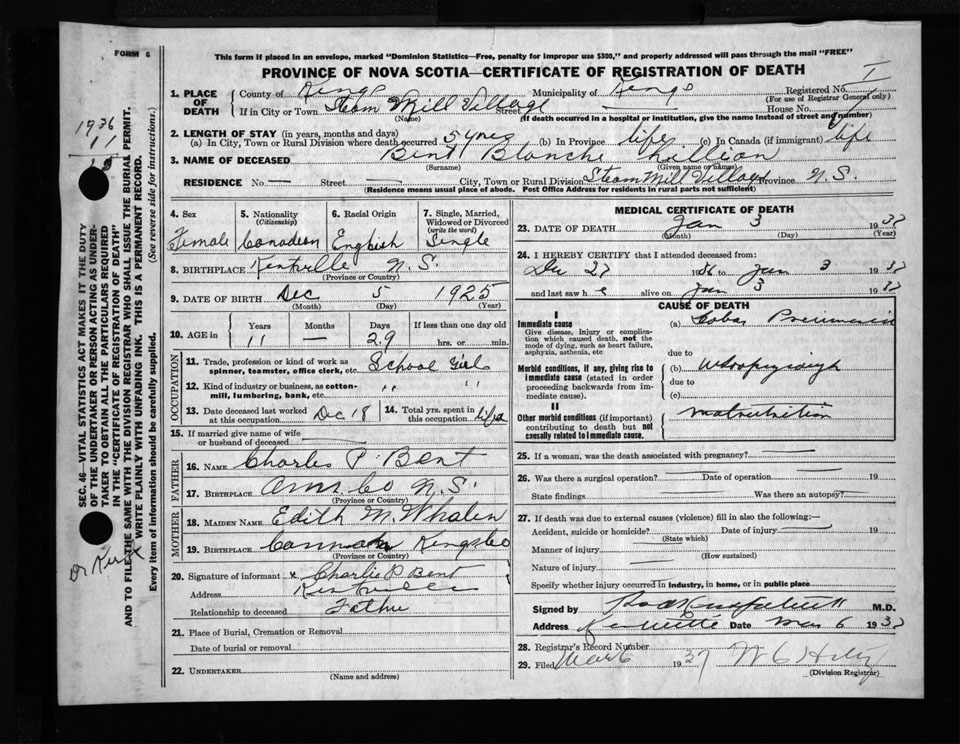 FORM 6
This form if placed in an envelope, marked "Dominion Statistics—Free, penalty for improper use $300," and properly addressed will pass through the mail "FREE"
PROVINCE OF NOVA SCOTIA—CERTIFICATE OF REGISTRATION OF DEATH
1. PLACE OF DEATH County of Kings Municipality of Kings Registered No. (For use of Registrar General only)
If in City or Town Steam Mill Village (Name) Street House No.
(If death occurred in a hospital or institution, give the name instead of street and number)
2. LENGTH OF STAY (in years, months and days)
(a) In City, Town or Rural Division where death occurred 5 yrs (b) In Province life (c) In Canada (if immigrant) life
3. NAME OF DECEASED Bent Blanche Lillian
(Surname) (Given name or names)
RESIDENCE No. — Street — City, Town or Rural Division Steam Mill Village Province N.S.
(Residence means usual place of abode. Post Office Address for residents in rural parts not sufficient)
4. Sex Female
5. Nationality (Citizenship) Canadian
6. Racial Origin English
7. Single, Married, Widowed or Divorced (write the word) Single
8. BIRTHPLACE Kentville N.S.
(Province or Country)
9. DATE OF BIRTH Dec 5 1925
(Month) (Day) (Year)
10. AGE in Years 11 Months — Days 29 If less than one day old hrs. or min.
OCCUPATION
11. Trade, profession or kind of work as spinner, teamster, office clerk, etc. School Girl
12. Kind of industry or business, as cotton-mill, lumbering, bank, etc. " "
13. Date deceased last worked at this occupation Dec 18
14. Total yrs. spent in this occupation
15. If married give name of wife or husband of deceased
FATHER
16. NAME Charles P. Bent
17. BIRTHPLACE N.S.
(Province or Country)
MOTHER
18. MAIDEN NAME Edith M. Whalen
19. BIRTHPLACE Kings Co
(Province or Country)
20. Signature of informant x Charlie P Bent
Address Kentville
Relationship to deceased Father
21. Place of Burial, Cremation or Removal
Date of burial or removal
22. UNDERTAKER
(Name and address)
MEDICAL CERTIFICATE OF DEATH
23. DATE OF DEATH Jan 3 1937
(Month) (Day) (Year)
24. I HEREBY CERTIFY that I attended deceased from:
Dec 27 1936 to Jan 3 1937
and last saw h e alive on Jan 3 1937
CAUSE OF DEATH
I
Immediate cause
Give disease, injury or complication which caused death, not the mode of dying, such as heart failure, asphyxia, asthenia, etc
(a) Lobar Pneumonia
due to
Morbid conditions, if any, giving rise to immediate cause (stated in order proceeding backwards from immediate cause).
(b) Whoopingcough
due to
(c)
II
Other morbid conditions (if important) contributing to death but not causally related to immediate cause.
malnutrition
25. If a woman, was the death associated with pregnancy?
26. Was there a surgical operation? Date of operation 19
State findings Was there an autopsy?
27. If death was due to external causes (violence) fill in also the following:—
Accident, suicide or homicide? Date of injury 19
(State which)
Manner of injury
(How sustained)
Nature of injury
Specify whether injury occurred in industry, in home, or in public place
Signed by M.D.
Address Kentville Date Mar 6 1937
28. Registrar's Record Number
29. Filed Mar 6 1937
(Division Registrar)
SEC. 46—VITAL STATISTICS ACT MAKES IT THE DUTY
OF THE UNDERTAKER OR PERSON ACTING AS UNDER-
TAKER TO OBTAIN ALL THE PARTICULARS REQUIRED
IN THE "CERTIFICATE OF REGISTRATION OF DEATH"
AND TO FILE THE SAME WITH THE DIVISION REGISTRAR WHO SHALL ISSUE THE BURIAL PERMIT.
WRITE PLAINLY WITH UNFADING INK. THIS IS A PERMANENT RECORD.
Every item of information should be carefully supplied. (See reverse side for instructions.)
1936
11